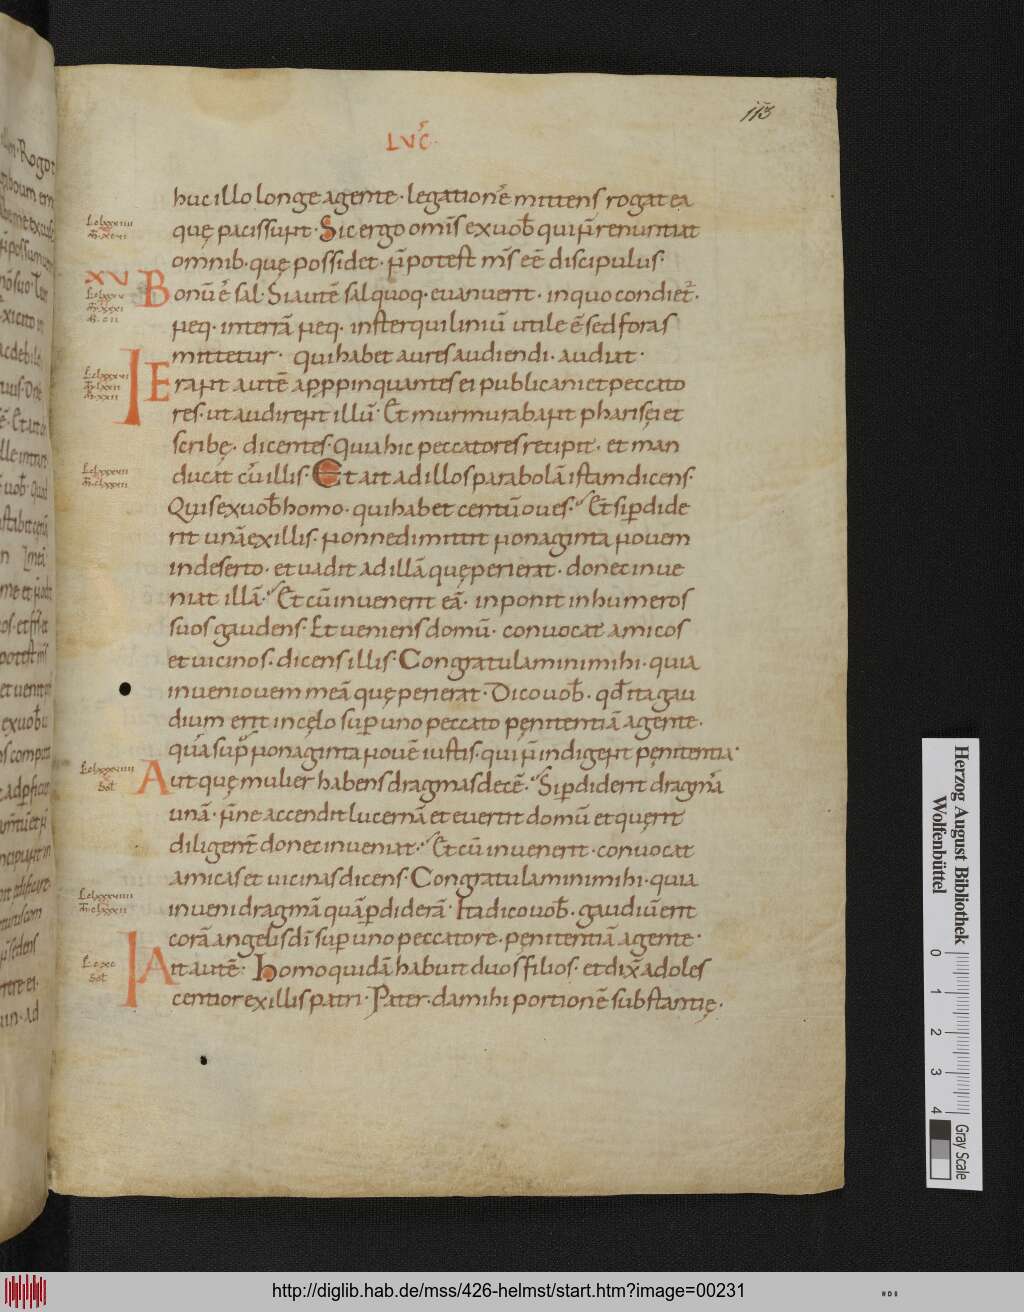 113
LVC̄.
huc illo longe agente · legationē mittens rogat ea
quę pacis sunt · Sic ergo om̄is ex vob̄ qui n̄ renuntiat
omnib · quę possidet · n̄ potest m̄s eē discipulus ·
XV Bonū ē sal · Si autē sal quoq · evanuerit · in quo condiet̄ ·
neq · in terrā neq · in sterquiliniū utile ē sed foras
mittetur · qui habet aures audiendi · audiat ·
ERant autē appropinquantes ei publicani et peccato
res · ut audirent illū · Et murmurabant pharisęi et
scribę · dicentes · Quia hic peccatores recipit · et man
ducat cū illis · Et ait ad illos parabolā istam dicens ·
Quis ex vob̄ homo · qui habet centū oves · Et si ꝑdide
rit unā ex illis · nonne dimittit nonaginta novem
in deserto · et vadit ad illā quę perierat · donec inve
niat illā · Et cū invenerit eā · inponit in humeros
suos gaudens · Et veniens domū · convocat amicos
et vicinos · dicens illis · Congratulamini mihi · quia
inveni ovem meā quę perierat · Dico vob̄ · qd̄ ita gau
dium erit in cęlo suꝑ uno peccato pęnitentiā agente ·
quā suꝑ nonaginta novē iustis · qui n̄ indigent pęnitentia ·
Aut quę mulier habens dragmas decē · Si ꝑdiderit dragmā
unā · n̄ne accendit lucernā et evertit domū et quęrit
diligent̄ donec inveniat · Et cū invenerit · convocat
amicas et vicinas dicens · Congratulamini mihi · quia
inveni dragmā quā ꝑdiderā · Ita dico vob̄ · gaudiū erit
corā angelis dī suꝑ uno peccatore · pęnitentiā agente ·
Ait autē · Homo quidā habuit duos filios · et dix̄ adoles
centior ex illis patri · Pater · da mihi portionē substantię ·
Herzog August Bibliothek
Wolfenbüttel
0 1 2 3 4
Gray Scale
http://diglib.hab.de/mss/426-helmst/start.htm?image=00231